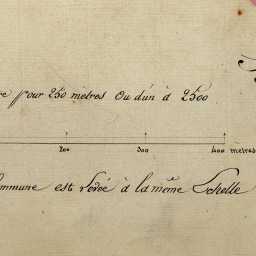 pour 250 metres ou d'un à 2500
200 300 400 metres
ommune est Levée à la même Echelle